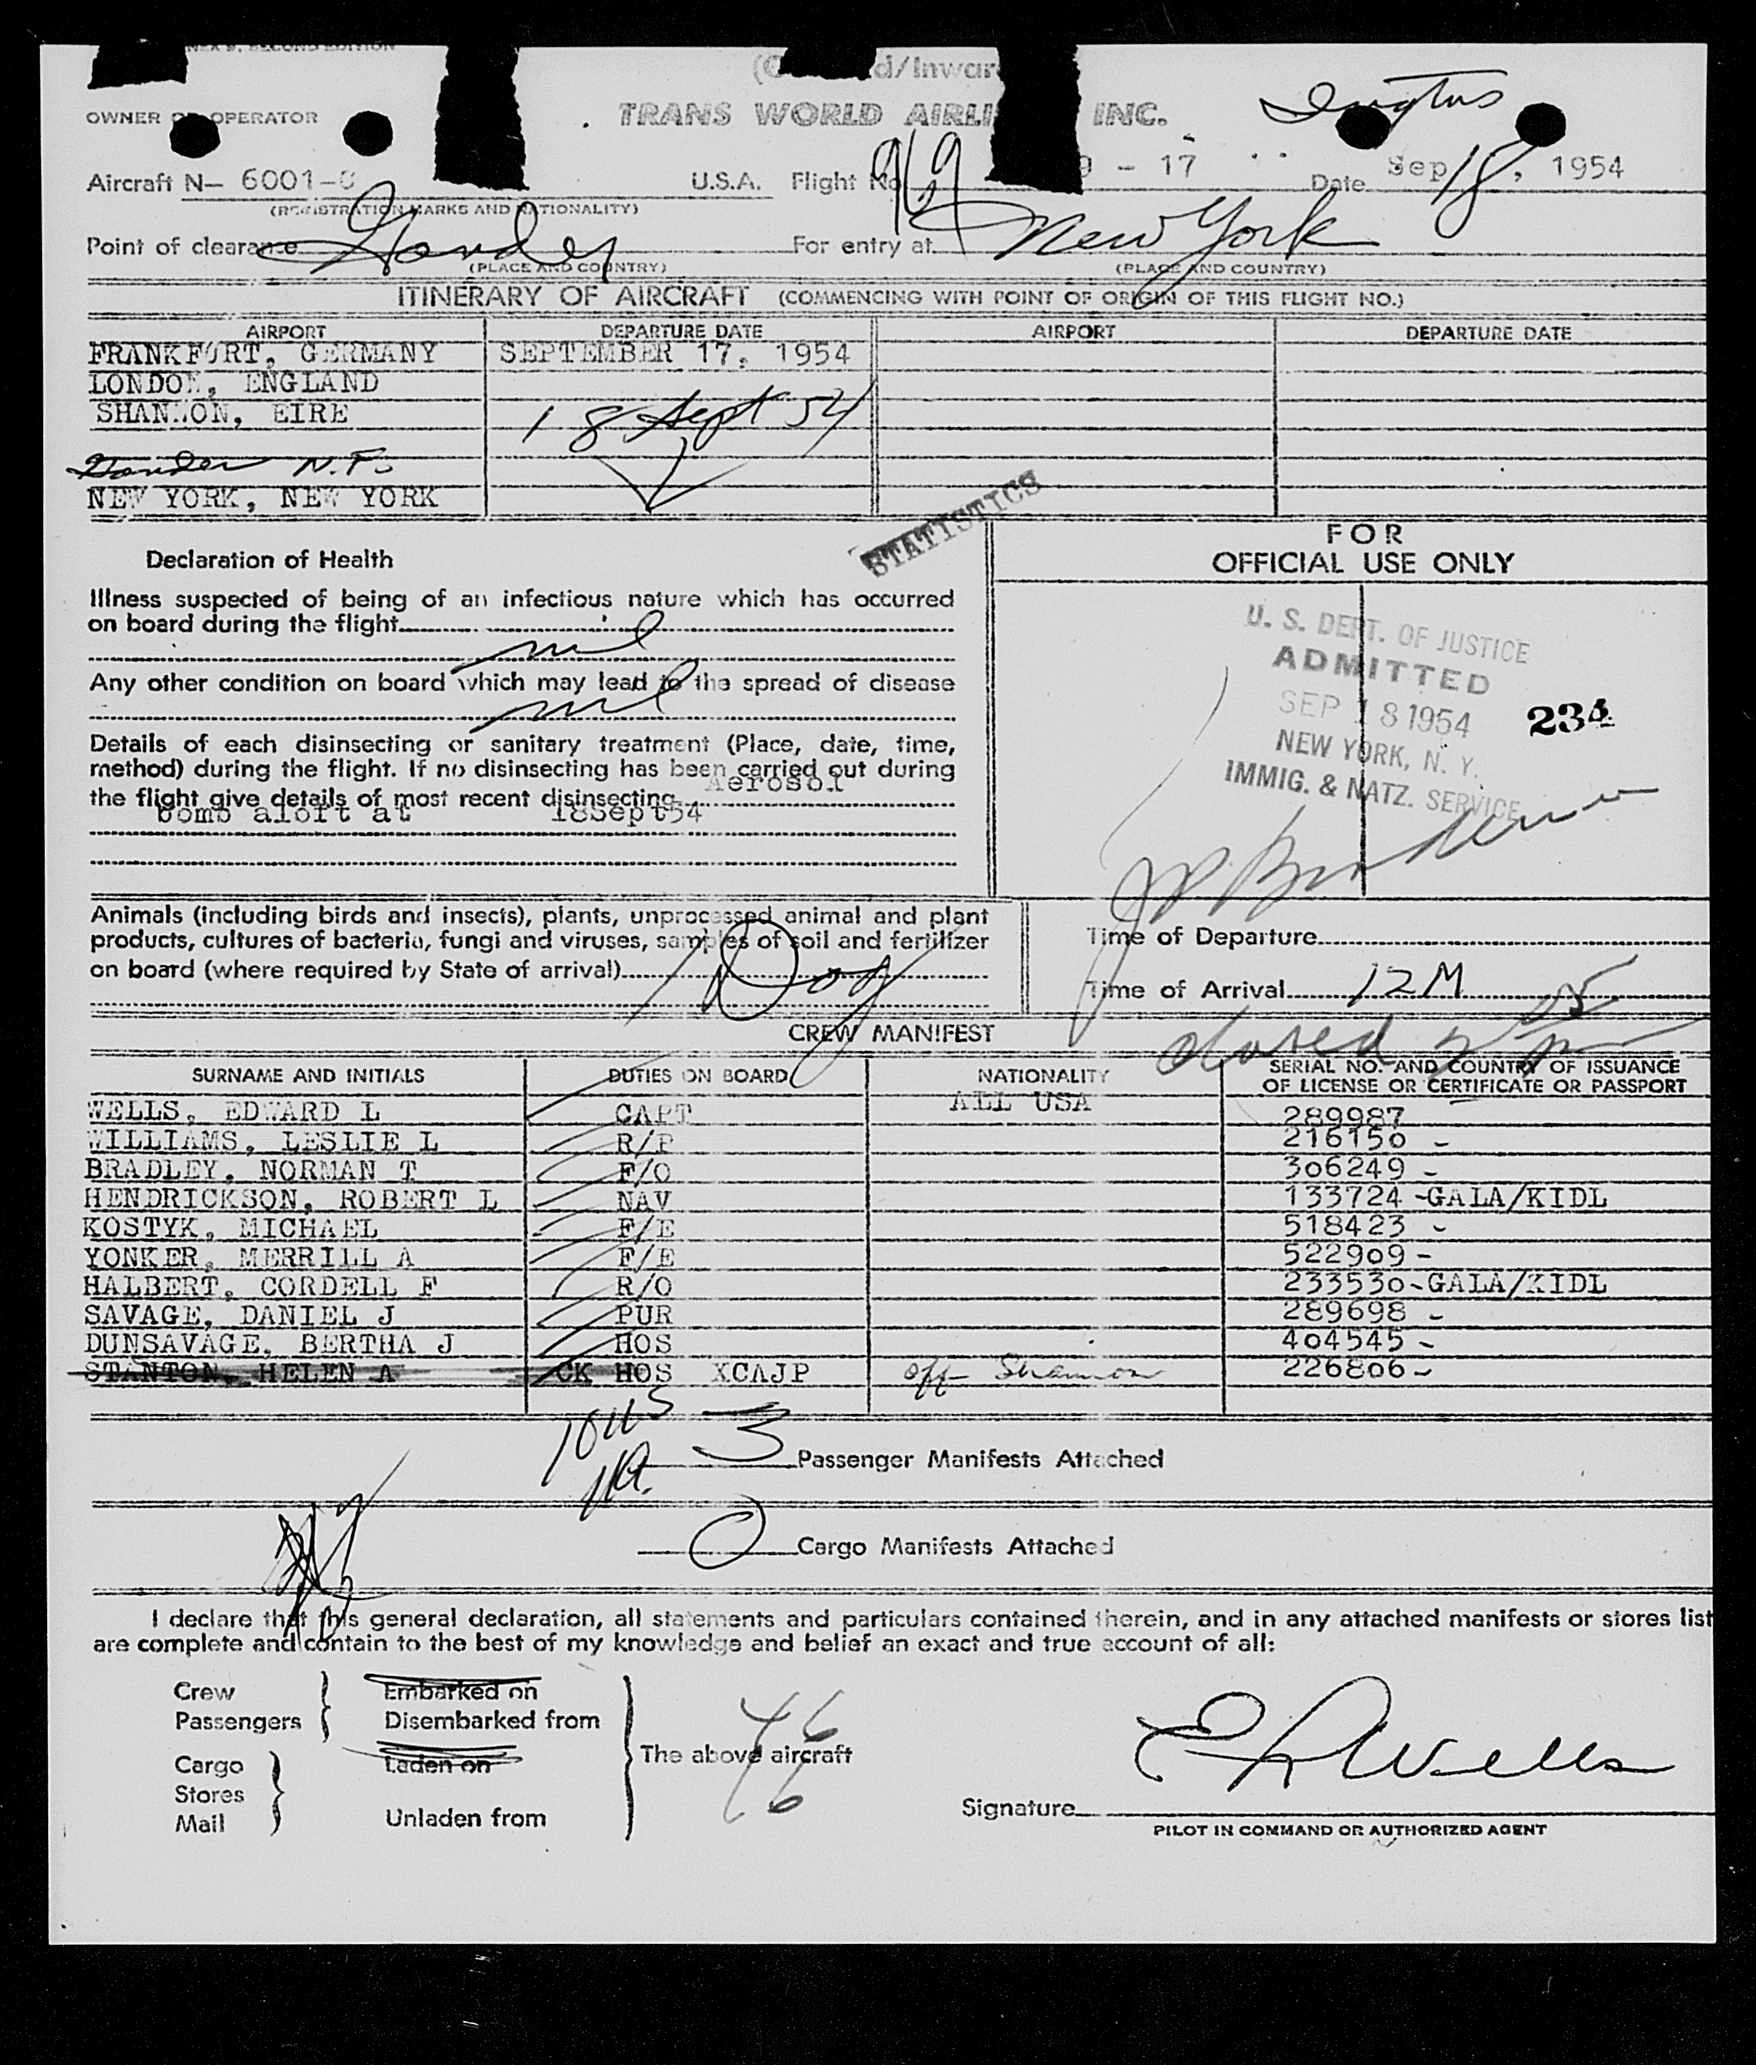 NEX 9, SECOND EDITION
d/Inward
OWNER OR OPERATOR TRANS WORLD AIRLI INC.
Aircraft N— 6001-C U.S.A. Flight No. 969 9 - 17 Date Sep 18, 1954
(REGISTRATION MARKS AND NATIONALITY)
Point of clearance Gander For entry at New York
(PLACE AND COUNTRY) (PLACE AND COUNTRY)
ITINERARY OF AIRCRAFT (COMMENCING WITH POINT OF ORIGIN OF THIS FLIGHT NO.)
AIRPORT DEPARTURE DATE AIRPORT DEPARTURE DATE
FRANKFURT, GERMANY SEPTEMBER 17, 1954
LONDON, ENGLAND
SHANNON, EIRE 18 Sept 54
Gander N.F.
NEW YORK, NEW YORK
STATISTICS
FOR
OFFICIAL USE ONLY
Declaration of Health
Illness suspected of being of an infectious nature which has occurred
on board during the flight
nil
Any other condition on board which may lead to the spread of disease
nil
Details of each disinsecting or sanitary treatment (Place, date, time,
method) during the flight. If no disinsecting has been carried out during
the flight give details of most recent disinsecting Aerosol
bomb aloft at 18Sept54
U. S. DEPT. OF JUSTICE
ADMITTED
SEP 18 1954
NEW YORK, N. Y.
IMMIG. & NATZ. SERVICE
Animals (including birds and insects), plants, unprocessed animal and plant
products, cultures of bacteria, fungi and viruses, samples of soil and fertilizer
on board (where required by State of arrival) 1 Dog
Time of Departure
Time of Arrival 12M
closed
CREW MANIFEST
SURNAME AND INITIALS DUTIES ON BOARD NATIONALITY SERIAL NO. AND COUNTRY OF ISSUANCE
OF LICENSE OR CERTIFICATE OR PASSPORT
WELLS, EDWARD L CAPT ALL USA 289987
WILLIAMS, LESLIE L R/P 216150 -
BRADLEY, NORMAN T F/O 306249 -
HENDRICKSON, ROBERT L NAV 133724 -GALA/KIDL
KOSTYK, MICHAEL F/E 518423 -
YONKER, MERRILL A F/E 522909 -
HALBERT, CORDELL F R/O 233530-GALA/KIDL
SAVAGE, DANIEL J PUR 289698 -
DUNSAVAGE, BERTHA J HOS 404545 -
STANTON, HELEN A CK HOS XCAJP off Shannon 226806-
10 US
1A.
3 Passenger Manifests Attached
0 Cargo Manifests Attached
I declare that this general declaration, all statements and particulars contained therein, and in any attached manifests or stores list
are complete and contain to the best of my knowledge and belief an exact and true account of all:
Crew Embarked on
Passengers Disembarked from
46
Cargo Laden on The above aircraft
Stores
Mail Unladen from
Signature E L Wells
PILOT IN COMMAND OR AUTHORIZED AGENT